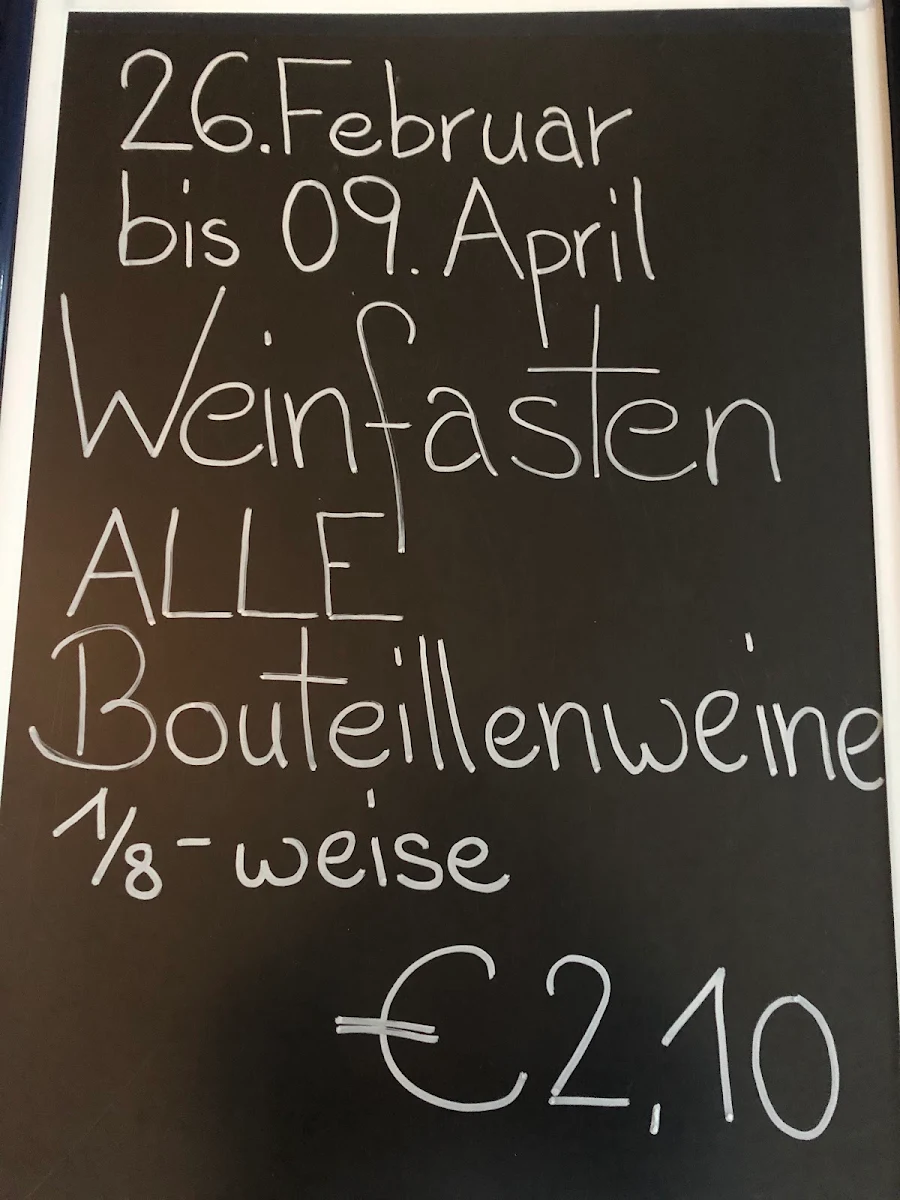 26.Februar
bis 09. April
Weinfasten
ALLE
Bouteillenweine
1/8-weise
€2,10